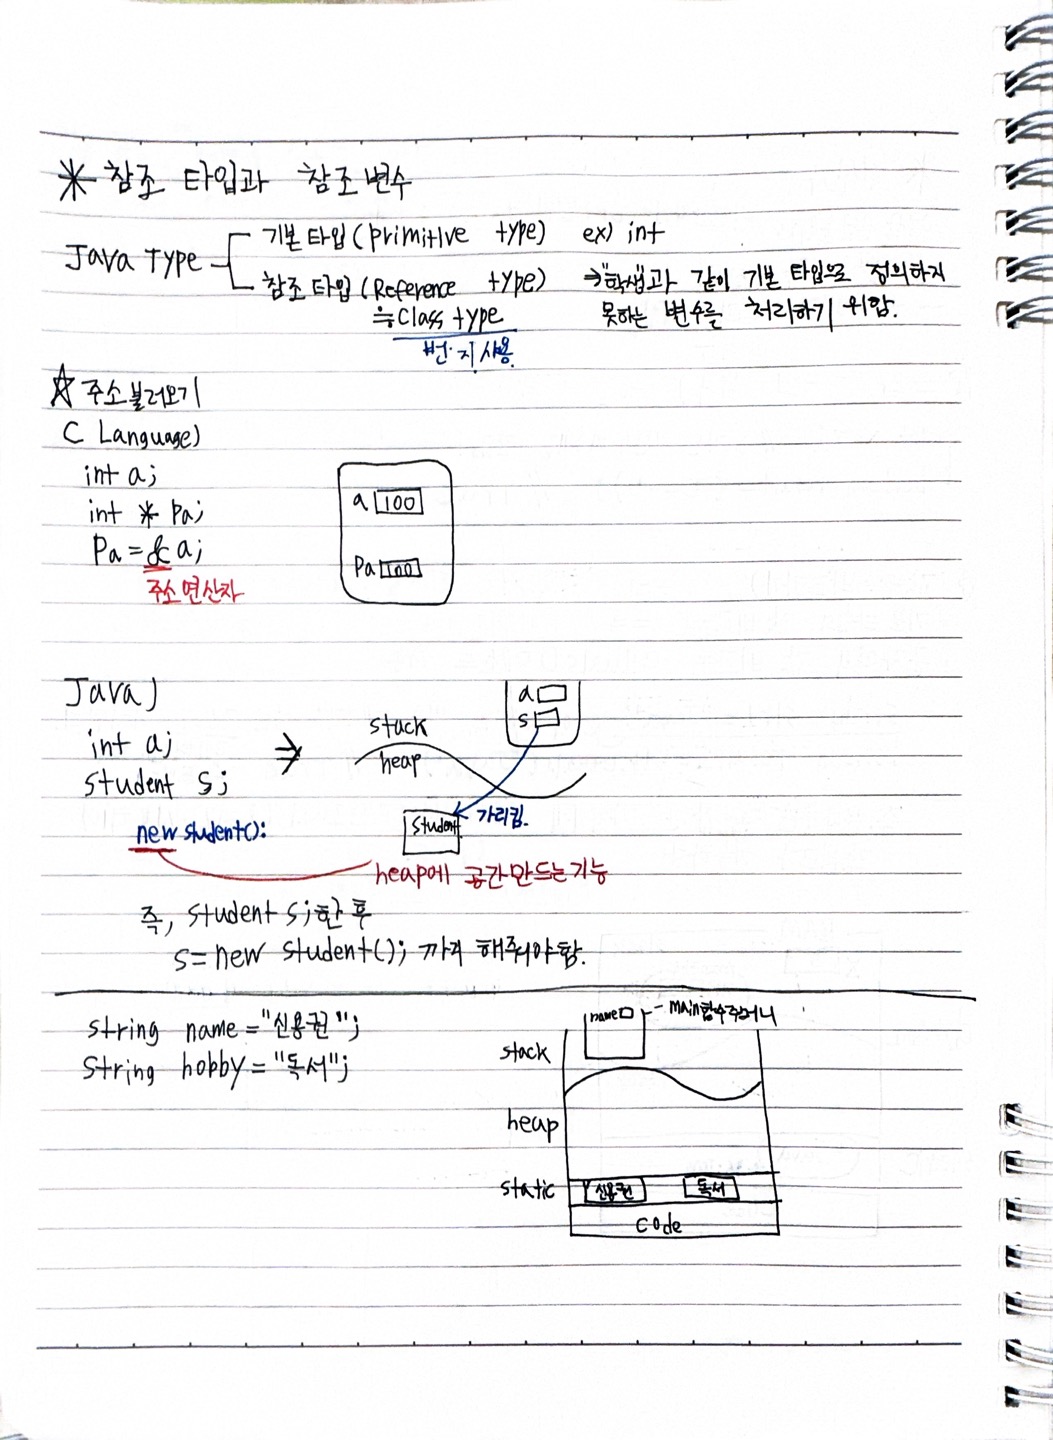 * 참조 타입과 참조변수
Java Type
기본타입(primitive type) ex) int
참조타입(Reference type) → "학생"과 같이 기본 타입으로 정의하지
≒ Class type 못하는 변수를 처리하기 위함.
번지사용.
☆ 주소불러오기
C Language)
int a;
int * Pa;
Pa = & a;
주소연산자
a 100
Pa 100
Java)
int a;
student s;
new student():
⇒
stack
heap
a
s
student
가리킴.
heap에 공간만드는기능
즉, student s;한 후
s = new student(); 까지 해줘야함.
string name = "신용권";
String hobby = "독서";
name - main함수주머니
stack
heap
static 신용권 독서
code